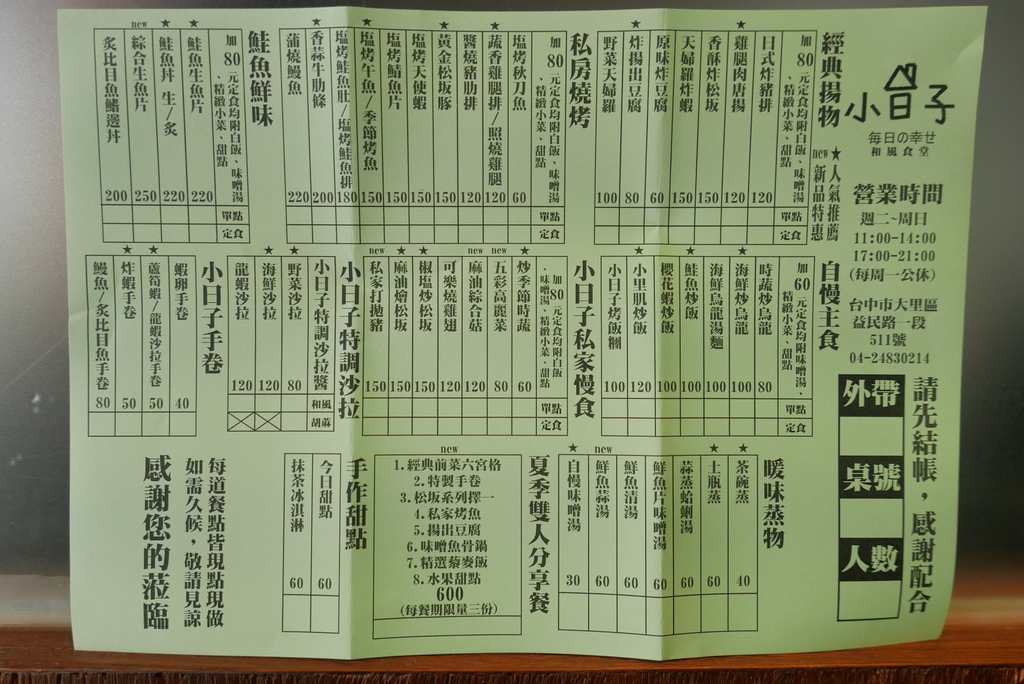 小日子
毎日の幸せ
和風食堂
營業時間
週二~周日
11:00-14:00
17:00-21:00
(每周一公休)
台中市大里區
益民路一段
511號
04-24830214
請先結帳,感謝配合
外帶
桌號
人數
經典揚物
★人氣推薦
new新品特惠
加80元定食均附白飯、味噌湯、精緻小菜、甜點
單點
定食
日式炸豬排 120
★雞腿肉唐揚 120
香酥炸松坂 150
天婦羅炸蝦 150
原味炸豆腐 60
★炸揚出豆腐 80
野菜天婦羅 100
私房燒烤
加80元定食均附白飯、味噌湯、精緻小菜、甜點
單點
定食
塩烤秋刀魚 60
★蔬香雞腿排/照燒雞腿 120
醬燒豬肋排 120
★黃金松坂豚 150
塩烤天使蝦 150
塩烤鯖魚片 150
★塩烤午魚/季節烤魚 150
塩烤鮭魚肚/塩烤鮭魚排 180
★香蒜牛肋條 200
蒲燒鰻魚 220
鮭魚鮮味
加80元定食均附白飯、味噌湯、精緻小菜、甜點
單點
定食
★鮭魚生魚片 220
★鮭魚丼 生/炙 220
new綜合生魚片 250
炙比目魚鰭邊丼 200
自慢主食
加60元定食均附味噌湯、精緻小菜、甜點
單點
定食
時蔬炒烏龍 80
★海鮮炒烏龍 100
海鮮烏龍湯麵 100
★鮭魚炒飯 100
櫻花蝦炒飯 100
★小里肌炒飯 120
小日子烤飯糰 100
小日子私家慢食
加80元定食均附白飯、味噌湯、精緻小菜、甜點
單點
定食
★炒季節時蔬 60
new五彩高麗菜 80
new麻油綜合菇 120
可樂燒雞翅 120
★椒塩炒松坂 150
★麻油燴松坂 150
new私家打拋豬 150
小日子特調沙拉
小日子特調沙拉醬
和風
胡蔴
★野菜沙拉 80
★海鮮沙拉 120
龍蝦沙拉 120
小日子手卷
蝦卵手卷 40
★蘆筍蝦/龍蝦沙拉手卷 50
★炸蝦手卷 50
鰻魚/炙比目魚手卷 80
暖味蒸物
★茶碗蒸 40
★土瓶蒸 60
蒜蒸蛤蜊湯 60
鮮魚片味噌湯 60
鮮魚清湯 60
new鮮魚蒜湯 60
★自慢味噌湯 30
夏季雙人分享餐
new
1.經典前菜六宮格
2.特製手卷
3.松坂系列擇一
4.私家烤魚
5.揚出豆腐
6.味噌魚骨鍋
7.精選藜麥飯
8.水果甜點
600
(每餐期限量三份)
手作甜點
今日甜點 60
抹茶冰淇淋 60
每道餐點皆現點現做
如需久候,敬請見諒
感謝您的蒞臨